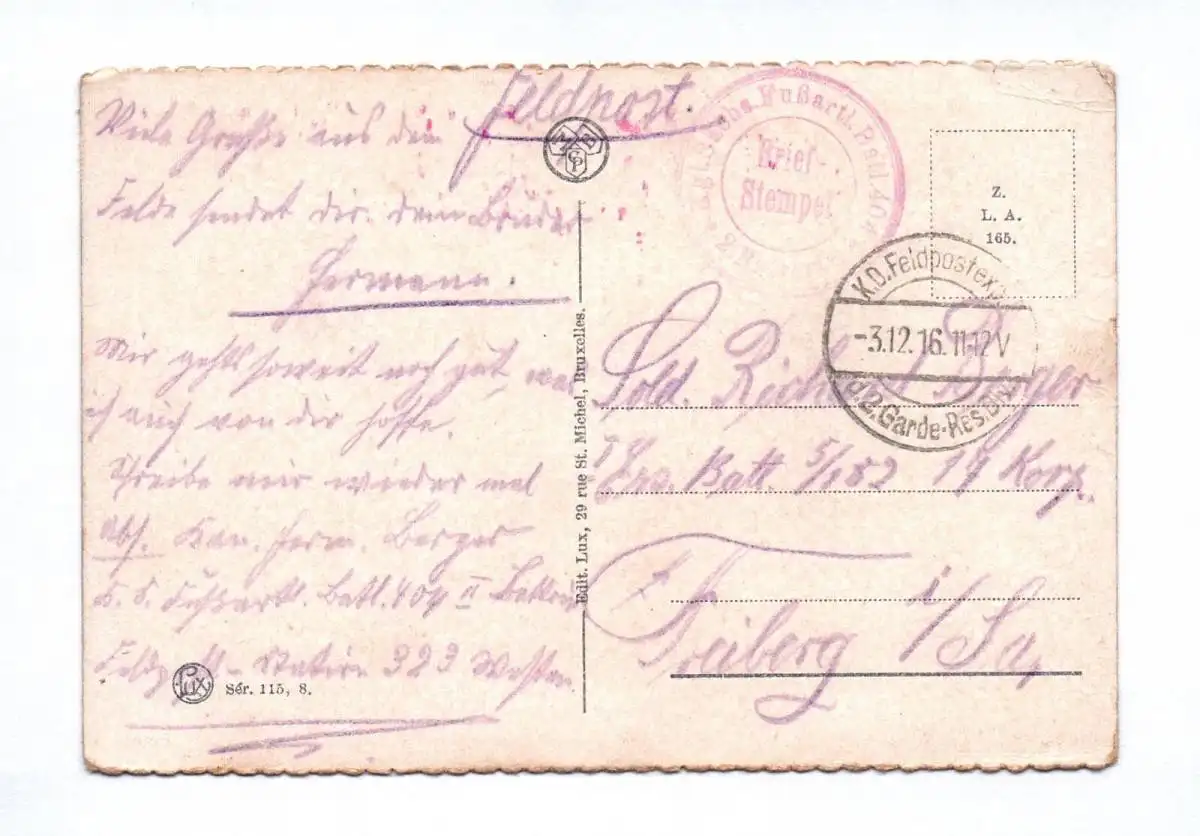 Feldpost.
Viele Grüße aus dem
Felde sendet dir dein Bruder
Hermann.
Mir gehts soweit noch gut, was
ich auch von dir hoffe.
Schreibe mir wieder mal
Abs. Kan. Herm. Berger
K. S. Fußartl. Batl. 404 II Battrie
Feldpost-Station 323 Westen
Lux
Sér. 115, 8.
Edit. Lux, 29 rue St. Michel, Bruxelles.
Sächs. Fußartl. Batl. 404
Brief-
Stempel
Z.
L. A.
165.
K.D. Feldpostexp.
-3.12.16. 11-12 V
d. 2. Garde-Res. Div.
Sold. Richard Berger
Ers. Batl. 5/182 19 Korp.
Freiberg i/Sa.